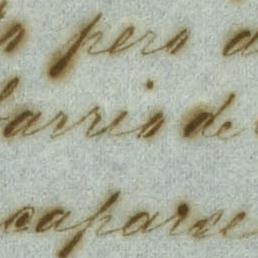 pero
barrio de
scaparse